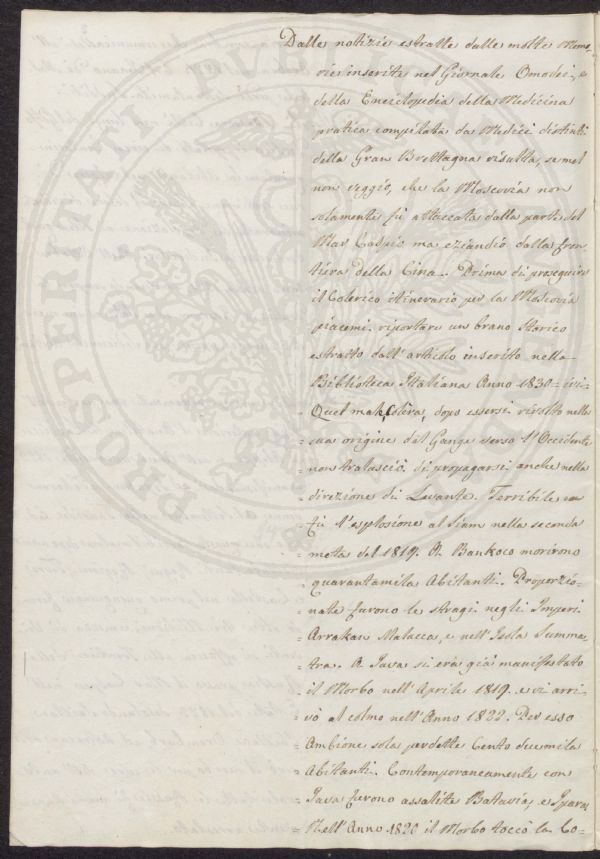 Dalle notizie estratte dalle molte Memo-
rie inserite nel Giornale Omodei, e
della Enciclopedia della Medicina
pratica compilata da Medici distinti
della Gran Brettagna risulta, se mal
non veggio, che la Moscovia non
solamente fù attaccata dalla parte del
Mar Caspio ma eziandio dalla fron-
tiera della Cina. Prima di proseguire
il Colerico itinerario per la Moscovia
piacemi riportare un brano Storico
estratto dall'articolo inserito nella
Biblioteca Italiana Anno 1830 = ivi =
Quel male, Colera, dopo essersi rivolto nella
= sua origine dal Gange verso l'Occidente
= non tralasciò di propagarsi anche nella
= direzione di Levante. Terribile ne
= fù l'esplosione al Siam nella seconda
= metà del 1819. A Bankoco morirono
= quarantamila Abitanti. Proporzio-
= nate furono le stragi negli Imperi
= Arrakan Malacca, e nell'Isola Summa-
= tra. A Java si era già manifestato
= il Morbo nell'Aprile 1819. e vi arri-
= vò al colmo nell'Anno 1822. Per esso
= Ambione sola perdette Cento due mila
= Abitanti. Contemporaneamente con
= Java furono assalite Batavia, e Ipara
= Nell'Anno 1820 il Morbo toccò la Co-
PROSPERITATI PUBLICAE